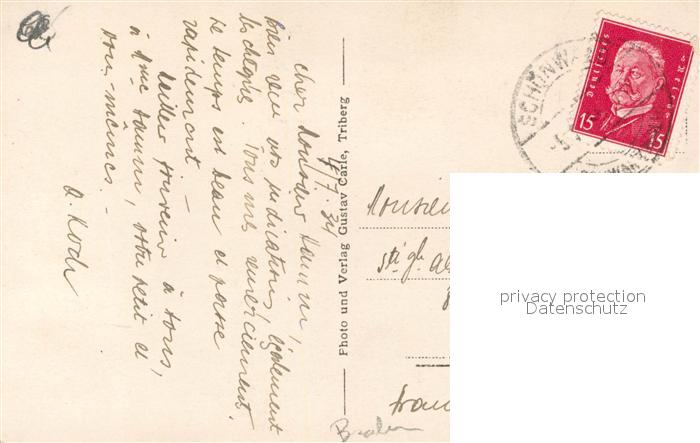 4/7.34
Cher Monsieur
bien reçu vos indications, également
les dépêches. Tous mes remerciements.
Le temps est beau et passe
rapidement. —
Meilleur souvenir à tous,
à Mme, votre petit et
vous-mêmes. —
A. Koch
Photo und Verlag Gustav Carle, Triberg
Deutsches Reich
15 15
SCHONW
Monsieur
privacy protection
Datenschutz